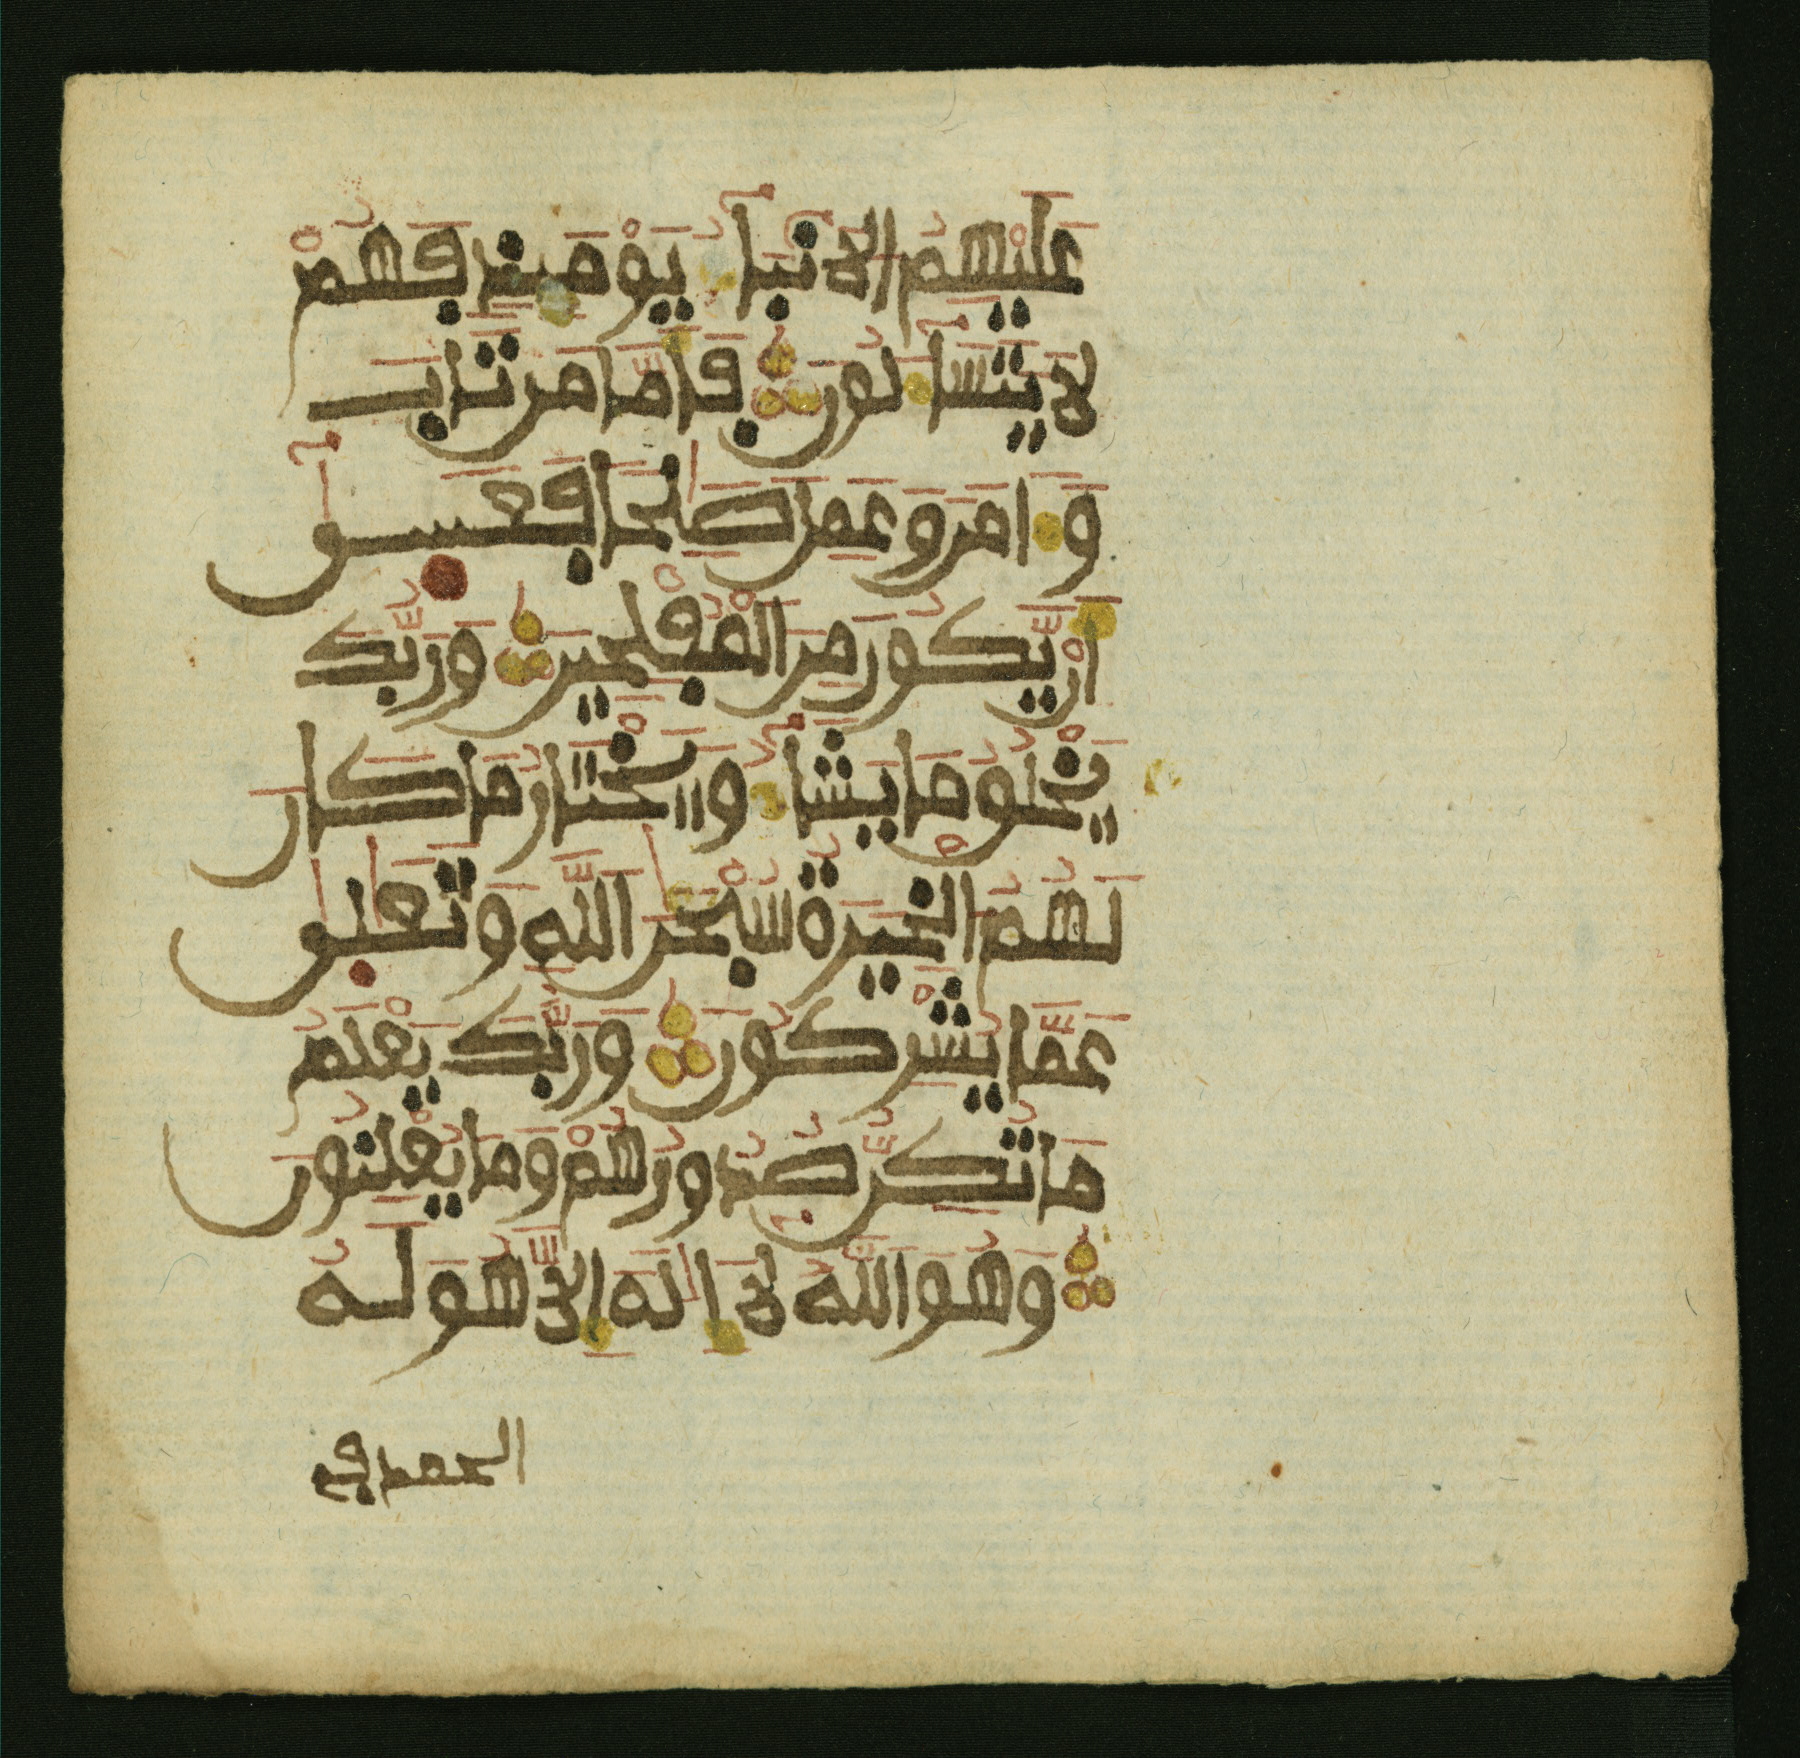 عَلَيْهِمُ الَانۢبَآءُ يَوْمَئِذٍ فَهُمْ
لَا يَتَسَآءَلُونَ فَأَمَّا مَن تَابَ
وَءَامَنَ وَعَمِلَ صَٰلِحًا فَعَسَىٰٓ
أَنْ يَّكُونَ مِنَ الْمُفْلِحِينَ وَرَبُّكَ
يَخْلُقُ مَا يَشَآءُ وَيَخْتَارُ مَا كَانَ
لَهُمُ الْخِيَرَةُ سُبْحَٰنَ اللَّهِ وَتَعَٰلَىٰ
عَمَّا يُشْرِكُونَ وَرَبُّكَ يَعْلَمُ
مَا تُكِنُّ صُدُورُهُمْ وَمَا يُعْلِنُونَ
وَهُوَ اللَّهُ لَا إِلَٰهَ إِلَّا هُوَ لَهُ
الحمد في